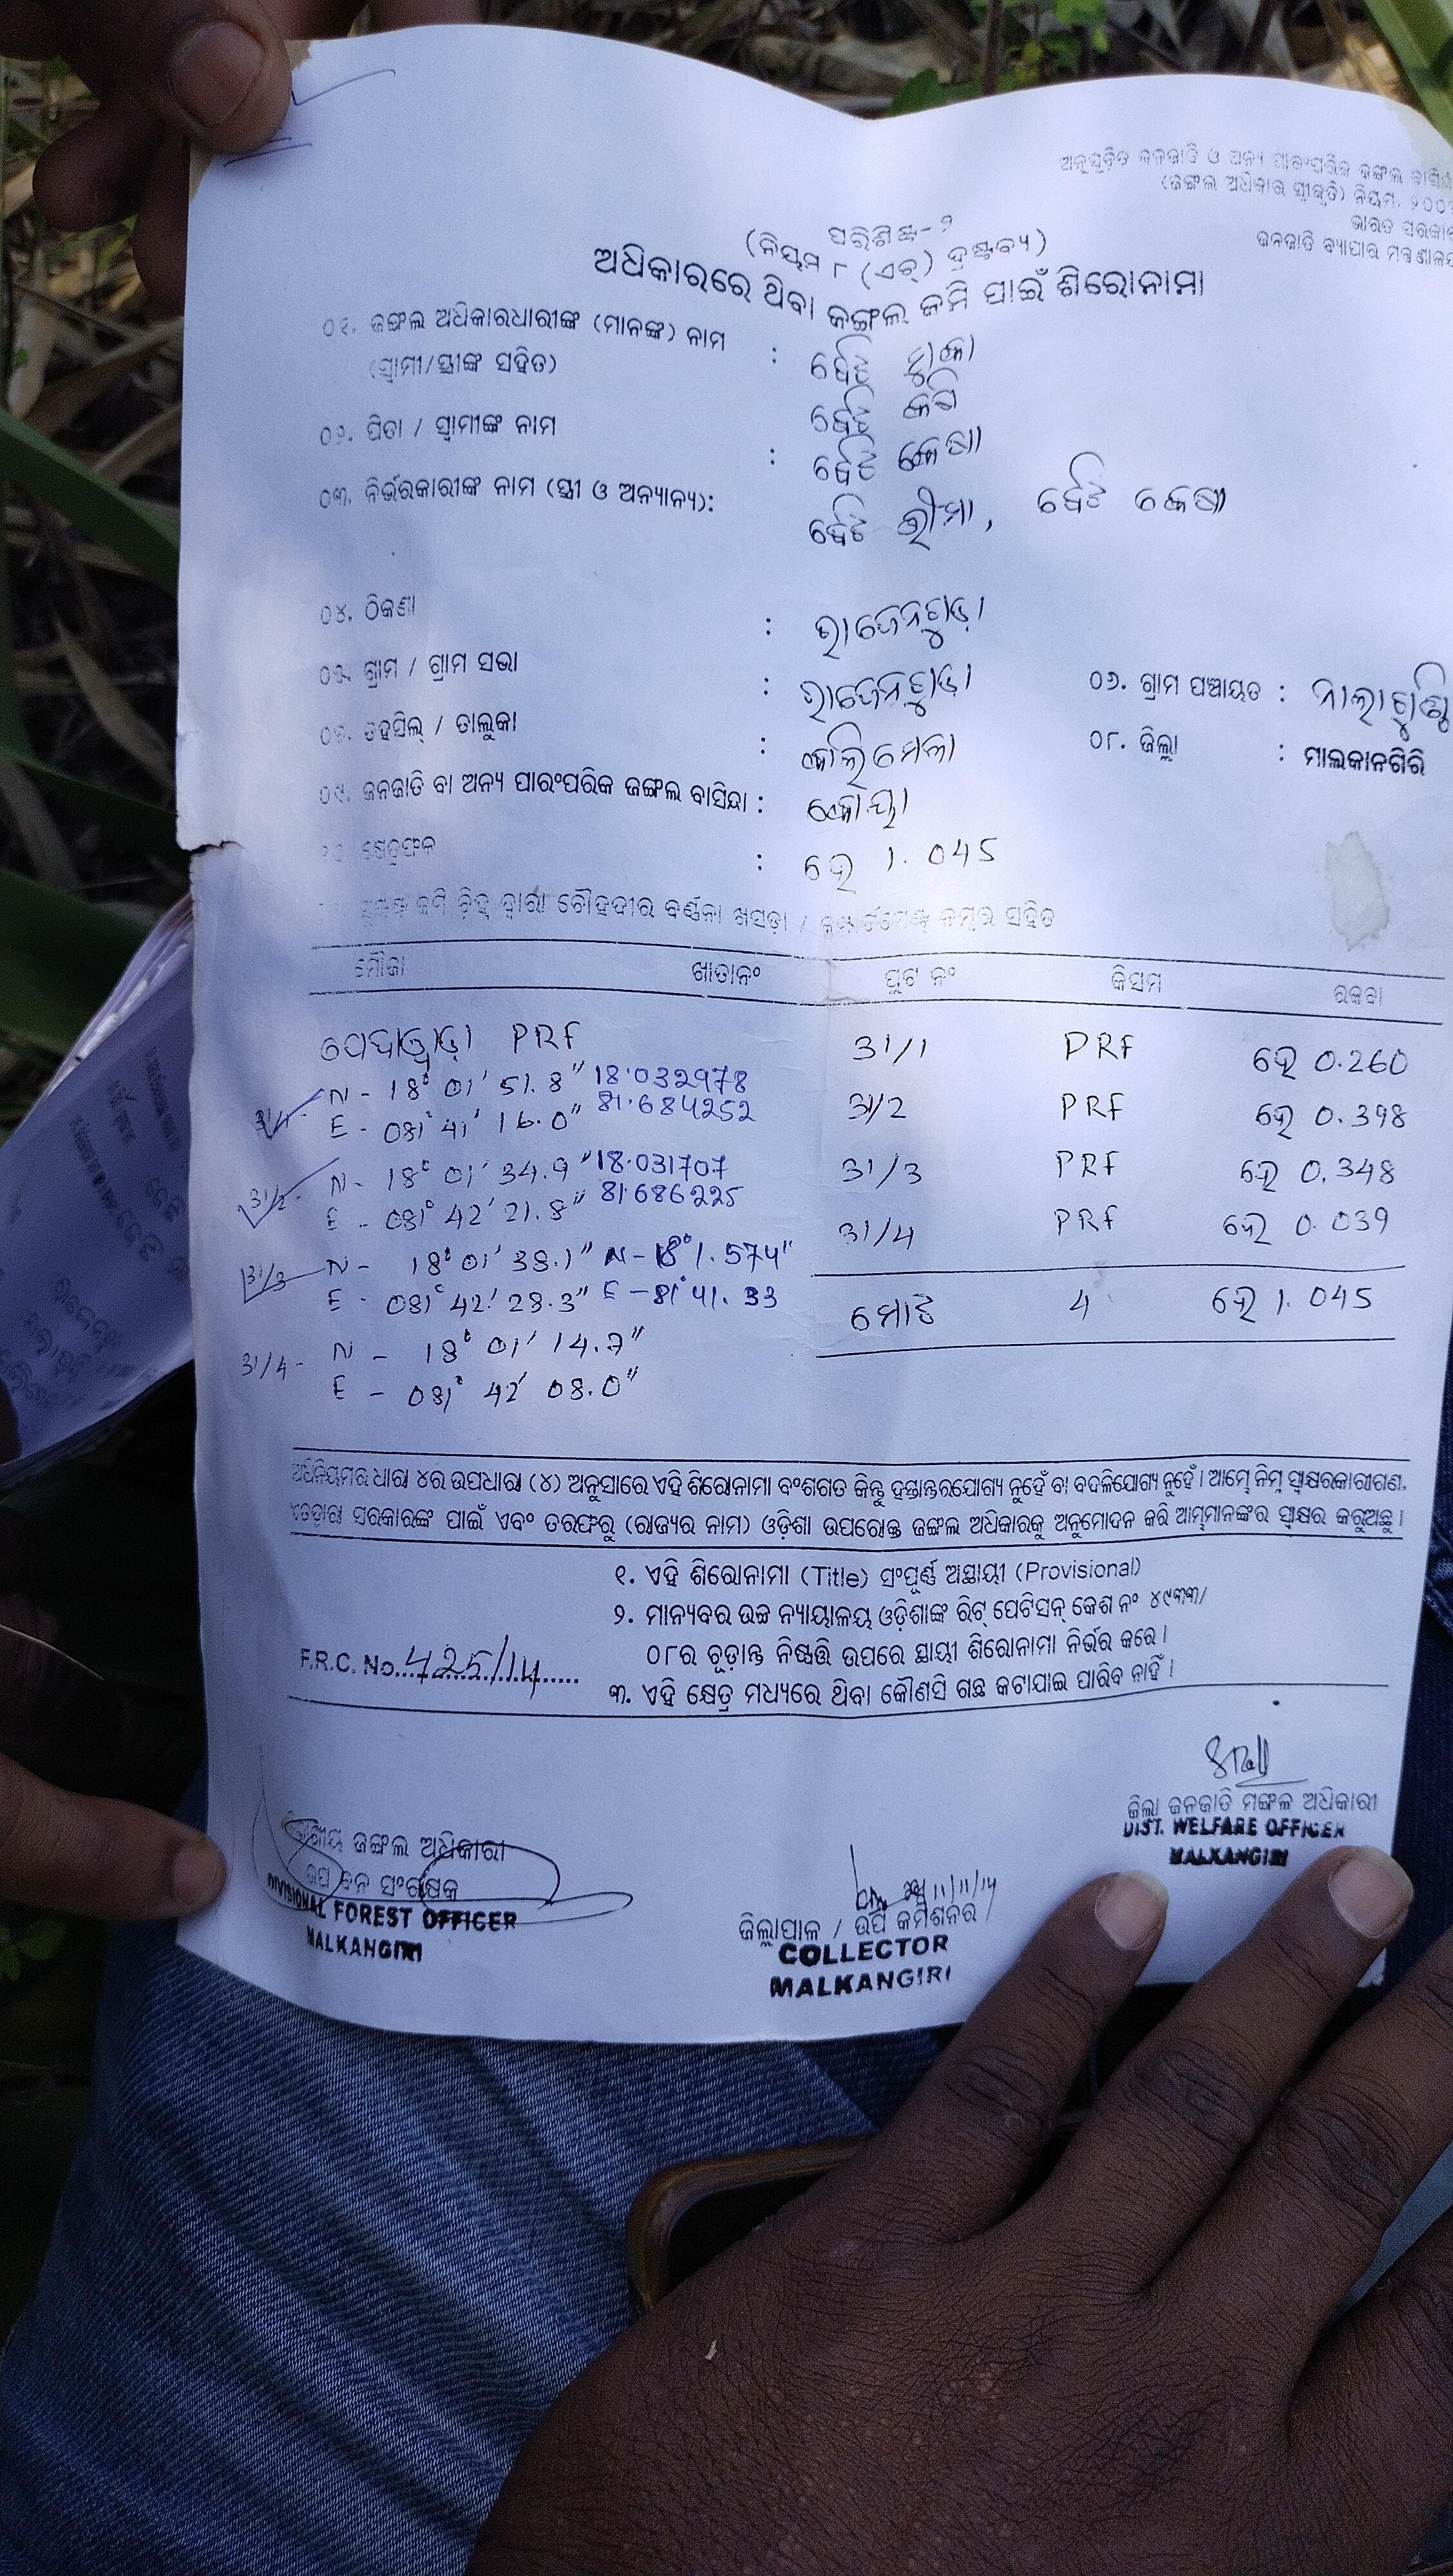 ଅନୁସୂଚିତ ଜନଜାତି ଓ ଅନ୍ୟ ପାରମ୍ପରିକ ଜଙ୍ଗଲ
(ଜଙ୍ଗଲ ଅଧିକାର ସ୍ୱୀକୃତି) ନିୟମ,
ଭାରତ ସରକାର
ଜନଜାତି ବ୍ୟାପାର ମନ୍ତ୍ରଣାଳୟ
ପରିଶିଷ୍ଟ-୨
(ନିୟମ ୮ (ଏଚ୍) ଦ୍ରଷ୍ଟବ୍ୟ)
ଅଧିକାରରେ ଥିବା ଜଙ୍ଗଲ ଜମି ପାଇଁ ଶିରୋନାମା
୦୧. ଜଙ୍ଗଲ ଅଧିକାରଧାରୀଙ୍କ (ମାନଙ୍କ) ନାମ :
(ସ୍ୱାମୀ/ସ୍ତ୍ରୀଙ୍କ ସହିତ)
୦୨. ପିତା / ସ୍ୱାମୀଙ୍କ ନାମ :
୦୩. ନିର୍ଭରକାରୀଙ୍କ ନାମ (ସ୍ତ୍ରୀ ଓ ଅନ୍ୟାନ୍ୟ):
୦୪. ଠିକଣା :
୦୫. ଗ୍ରାମ / ଗ୍ରାମ ସଭା : ୦୬. ଗ୍ରାମ ପଞ୍ଚାୟତ :
ତହସିଲ୍ / ତାଲୁକା : କାଲିମେଲା ୦୮. ଜିଲ୍ଲା : ମାଲକାନଗିରି
୦୯. ଜନଜାତି ବା ଅନ୍ୟ ପାରଂପରିକ ଜଙ୍ଗଲ ବାସିନ୍ଦା : କୋୟା
୧୦. କ୍ଷେତ୍ରଫଳ : ହେ 1.045
ଜମି ଚିହ୍ନ ଦ୍ୱାରା ଚୌହଦୀର ବର୍ଣ୍ଣନା ଖସଡ଼ା / କମ୍ପାର୍ଟମେଣ୍ଟ ନମ୍ବର ସହିତ
ମୌଜା ଖାତାନଂ ପ୍ଲଟ ନଂ କିସମ ରକବା
PRF 31/1 PRF ହେ 0.260
31/1 - N - 18° 01' 51.8" 18.032978
E - 081° 41' 16.0" 81.684252
31/2 PRF ହେ 0.398
31/2 - N - 18° 01' 34.9" 18.031707
E - 081° 42' 21.8" 81.686225
31/3 PRF ହେ 0.348
31/3 - N - 18° 01' 38.1" N - 18° 1.574"
E - 081° 42' 28.3" E - 81° 41.33
31/4 PRF ହେ 0.039
ମୋଟ 4 ହେ 1.045
31/4 - N - 18° 01' 14.7"
E - 081° 42' 08.0"
ଅଧିନିୟମର ଧାରା ୪ର ଉପଧାରା (୪) ଅନୁସାରେ ଏହି ଶିରୋନାମା ବଂଶଗତ କିନ୍ତୁ ହସ୍ତାନ୍ତରଯୋଗ୍ୟ ନୁହେଁ ବା ବଦଳିଯୋଗ୍ୟ ନୁହେଁ । ଆମ୍ଭେ ନିମ୍ନ ସ୍ୱାକ୍ଷରକାରୀଗଣ,
ଏତଦ୍ୱାରା ସରକାରଙ୍କ ପାଇଁ ଏବଂ ତରଫରୁ (ରାଜ୍ୟର ନାମ) ଓଡ଼ିଶା ଉପରୋକ୍ତ ଜଙ୍ଗଲ ଅଧିକାରକୁ ଅନୁମୋଦନ କରି ଆମ୍ଭମାନଙ୍କର ସ୍ୱାକ୍ଷର କରୁଅଛୁ ।
୧. ଏହି ଶିରୋନାମା (Title) ସଂପୂର୍ଣ୍ଣ ଅସ୍ଥାୟୀ (Provisional)
୨. ମାନ୍ୟବର ଉଚ୍ଚ ନ୍ୟାୟାଳୟ ଓଡ଼ିଶାଙ୍କ ରିଟ୍ ପେଟିସନ୍ କେଶ ନଂ ୪୯୩୩/
୦୮ର ଚୂଡ଼ାନ୍ତ ନିଷ୍ପତ୍ତି ଉପରେ ସ୍ଥାୟୀ ଶିରୋନାମା ନିର୍ଭର କରେ ।
F.R.C. No. 425/14
୩. ଏହି କ୍ଷେତ୍ର ମଧ୍ୟରେ ଥିବା କୌଣସି ଗଛ କଟାଯାଇ ପାରିବ ନାହିଁ ।
ଜିଲ୍ଲା ଜନଜାତି ମଙ୍ଗଳ ଅଧିକାରୀ
DIST. WELFARE OFFICER
MALKANGIRI
ଜଙ୍ଗଲ ଅଧିକାରୀ
ଉପ ବନ ସଂରକ୍ଷକ
DIVISIONAL FOREST OFFICER
MALKANGIRI
11/11/14
ଜିଲ୍ଲାପାଳ / ଉପ କମିଶନର
COLLECTOR
MALKANGIRI